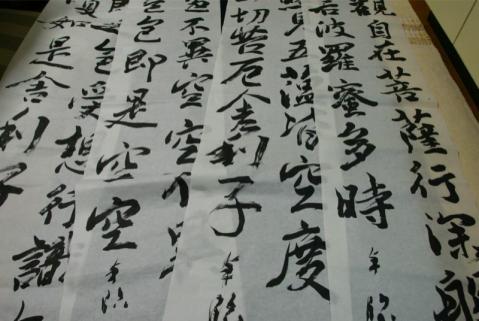 觀自在菩薩行深般
若波羅蜜多時
見五蘊皆空度
切苦厄舍利子
不異空空不
色即是空空
是色受想行識
如是舍利子